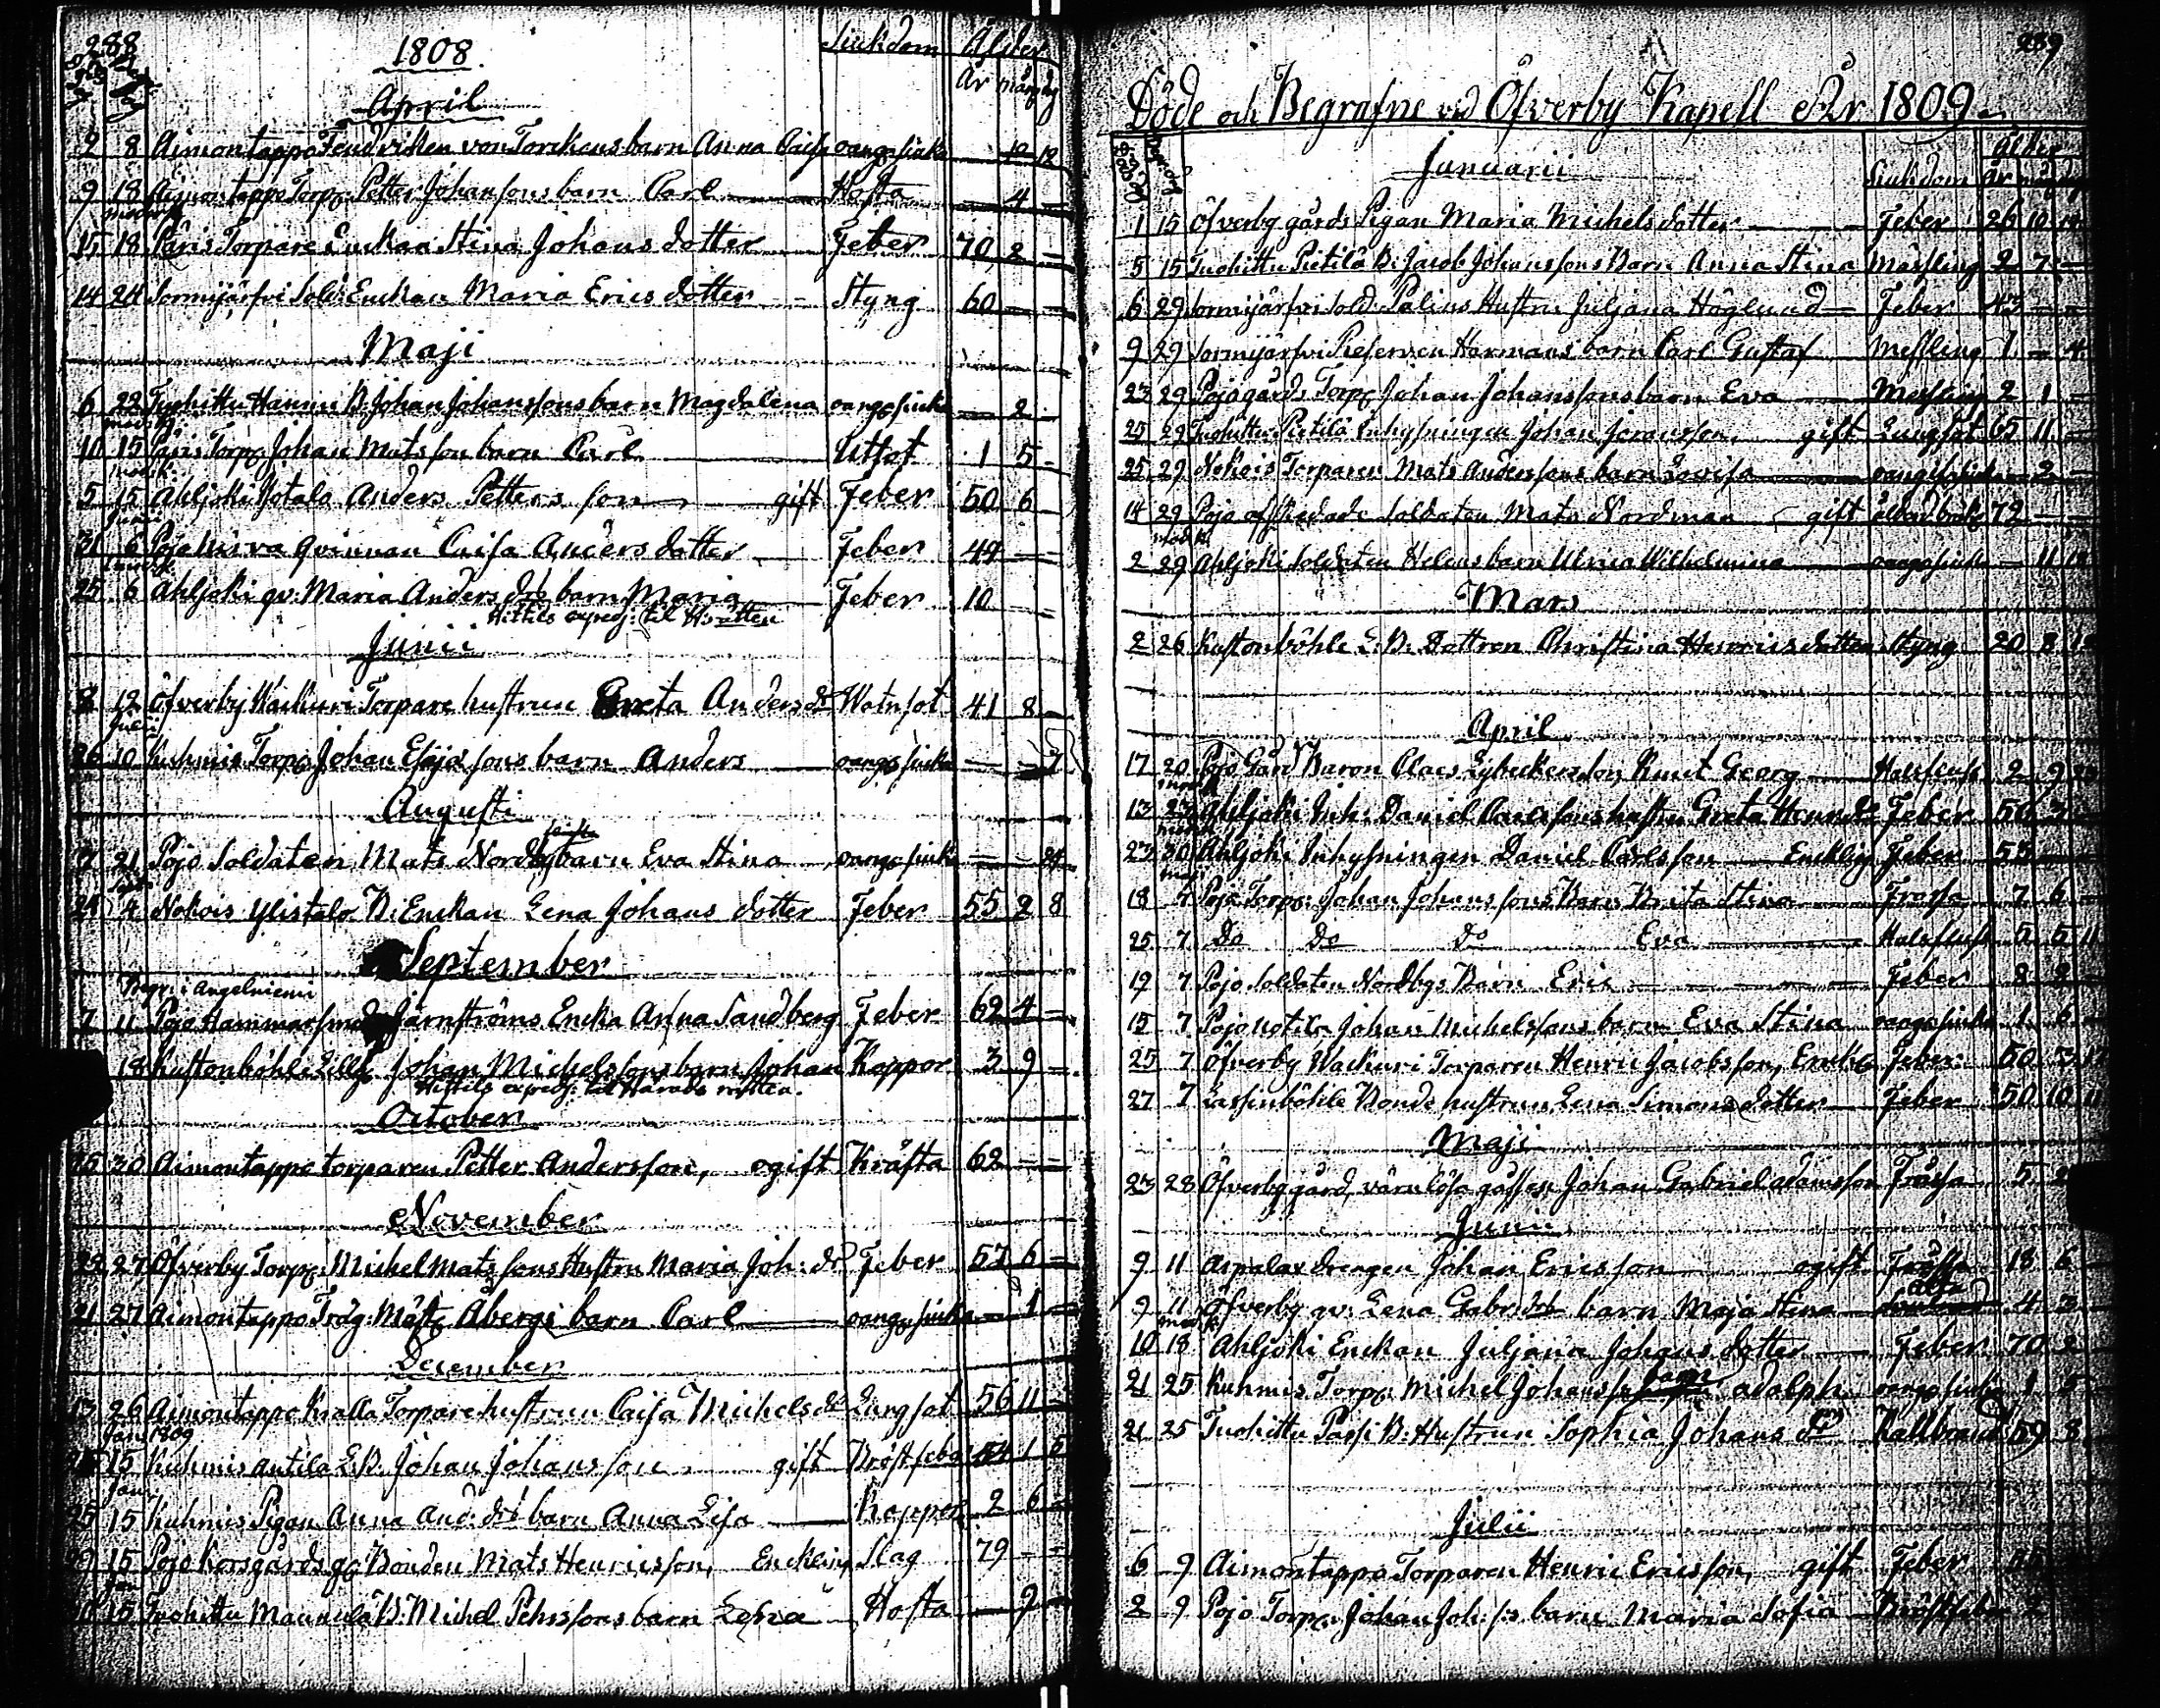 288
1808.
Siukdom Ålder
År mån dag
April
2 8 Aimontappo Fendricken von Torckens barn Anna Caisa oangs siuka 12
9 18 Aimontappo Torp: Petter Johanssons barn Carl Hosta 4
15 18 Päris Torpare Enckan Stina Johans dotter Feber 70 2
14 24 Sormijärfvi Sold: Enckan Maria Erics dotter Styng 60
Maji
6 22 Tuohittu Hannu B: Johan Johanssons barn Magdalena oangs siuka 2
10 15 Päris Torp: Johan Matsson barn Carl Uttot 1 5
5 15 Ahljoki Yotala Anders Pettersson, gift Feber 50 6
Junii
31 6 Pojo Niva qvinnan Caisa Anders dotter Feber 44
25 6 Ahljoki qv: Maria Anders dots barn Maria Feber 10
Hittils exped: til H:rätten
Junii
8 12 Öfverby Wäckuri Torpare hustrun Greta Anders dr Watusot 41 8
Julii
26 10 Kuhmis Torp: Johan Esajssons barn Anders oangs siuka 7
Augusti
17 21 Pojo Soldaten Mats Nordbergs barn Eva Stina oangs siuka
Sept:
24 4 Nokois Ylistalo B: Enckan Lena Johans dotter Feber 55 2 8
September
Begr: i Angelniemi
7 11 Pojo Hammarsmed Järnströms Encka Anna Sandberg Feber 62 4
18 Kustonböhle Johan Michelssons barn Johan Koppor 3 9
Hittils exped: til Härads rätten.
October
25 30 Aimontappo torparen Petter Andersson, ogift Kräfta 62
November
22 27 Öfverby Torp: Michel Matssons Hustru Maria Joh: dr Feber 57 6
21 27 Aimontappo Träg: Mäst: Åbergs barn Carl oangs siuka 1
December
13 26 Aimontappo Kralla Torpare hustrun Caisa Michels dr Lungsot 56 11
Jan: 1809
15 Kuhmis Antila B: Johan Johansson, gift Bröstfeber 1 5
Jan:
25 15 Kuhmis Pigan Anna And: dots barn Anna Lisa Koppor 2 6
29 15 Pojo Korsgårds Bonden Mats Henricsson, Enckling Slag 79
Jan
15 Tuohittu Mannula B: Michel Pehrssons barn Hosta 9
289
Döde och Begrafne vid Öfverby Kapell År 1809.
Januarii
Siukdom Ålder
År
1 15 Öfverby gårds Pigan Maria Michels dotter Feber 26 10
5 15 Tuohittu Pietilä B: Jacob Johanssons Barn Anna Stina Mässling 2 7
6 29 Sormijärfvi Sold: Palins Hustru Juljana Höglund Feber 43
9 29 Sormijärfvi Reserven Harmans barn Carl Gustaf Messling 1 4
23 29 Pojo gårds Torp: Johan Johanssons barn Eva Messling 2 1
25 29 Tuohittu Pietilä Inhysningen Johan Göransson, gift Lungsot 65 11
25 29 Nokois Torparen Mats Anderssons barn Lovisa oangs siuka 2
14 29 Pojo afskedade Soldaten Mats Nordman gift ålderdb: 72
2 29 Ahljoki Soldaten Helens barn Ulrica Wilhelmina oangs siuka 11
Mars
2 26 Kustonböhle B: Dottren Christina Henrics dotter Styng 20 8
April
17 20 Pojo Gård Baron Claes Lybeckers Son Knut Georg Halsfluss 2 9
13 23 Ahljoki Inh: Daniel Carlssons hustru Greta Henr: dr Feber 56 3
23 30 Ahljoki Inhysningen Daniel Carlsson Enckling Feber 55
Maj
18 7 Pojo Torp: Johan Johanssons Barn Brita Stina Frossa 7 6
25 7 Do Do Do Eva Halsfluss 5 5 11
19 7 Pojo Soldaten Nordbgs Barn Eric Feber 8 2
15 7 Pojo Notila Johan Michelssons barn Eva Stina oangs siuka 1 6
25 7 Öfverby Wäckuri Torparen Henric Jacobsson, Enckl: Feber 50 3
27 7 Lassinböhle Bonde hustrun Lena Simons dotter Feber 50 10 11
Maji
23 28 Öfverby gård värnlösa gossen Johan Gabriel Adamsson Fråssa 5 2
Junii
9 11 Aspalax drengen Johan Ericsson ogift Fråssa 18 6
9 11 Öfverby qv: Lena Gabr: dots barn Maja Stina 4 3
10 18 Ahljoki Enckan Juljana Johans dotter Feber 70 2
21 25 Kuhmis Torp: Michel Johanssons barn Adolph oangs siuka 1 5
21 25 Tuohittu Passi B: Hustrun Sophia Johans dr Kallbrand 59 8
Julii
6 9 Aimontappo Torparen Henric Ericsson, gift Feber
2 9 Pojo Torp: Johan Joh: ss barn Maria Sofia Bröstfeber 2